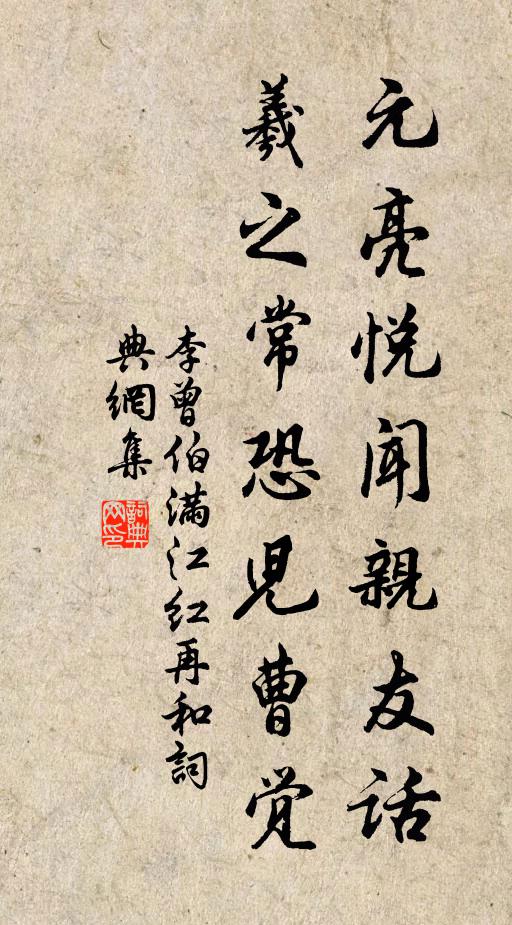 元亮悦闻親友话
羲之常恐児曹觉
李曾伯满江红再和詞
典網集
詞典网印